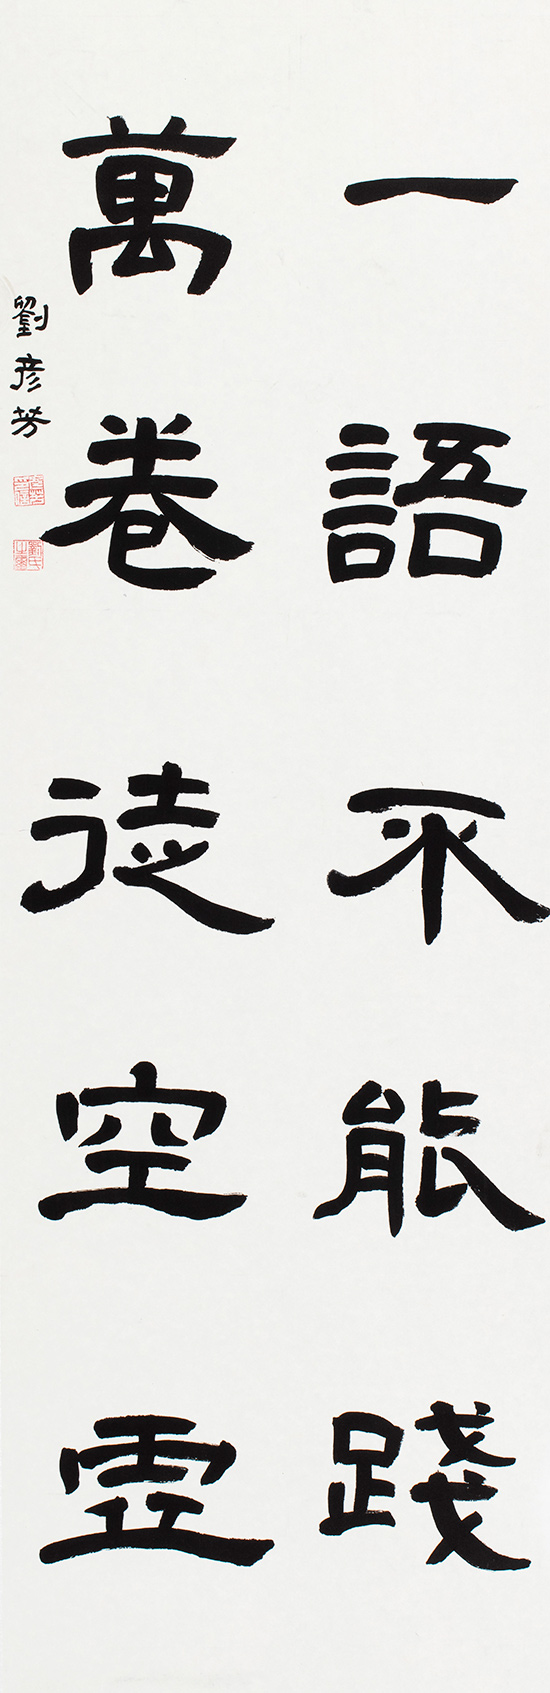 一語不能踐
萬卷徒空虛
劉彥芳